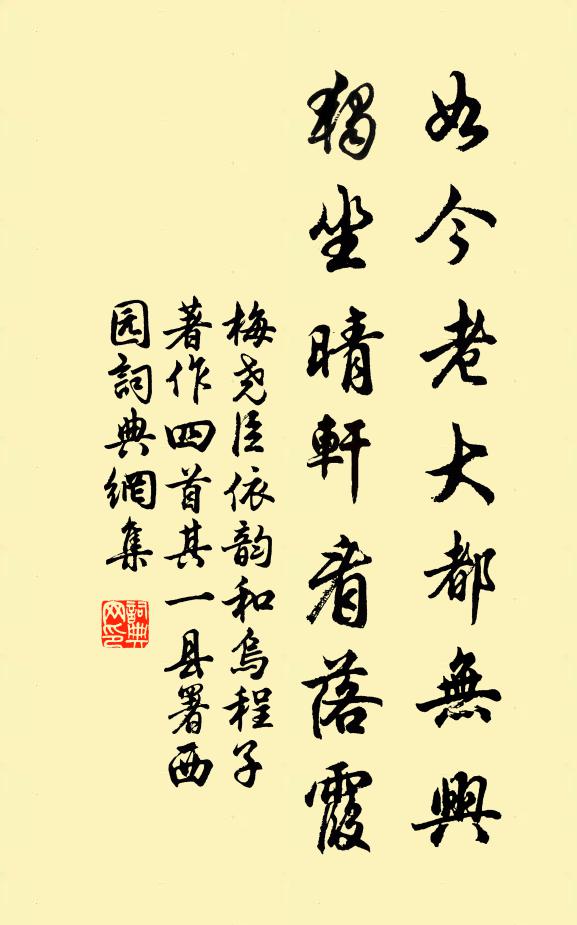 如今老大都無興
獨坐晴軒看落霞
梅尧臣依韵和烏程子
著作四首其一县署西
园詞典網集
詞典网印